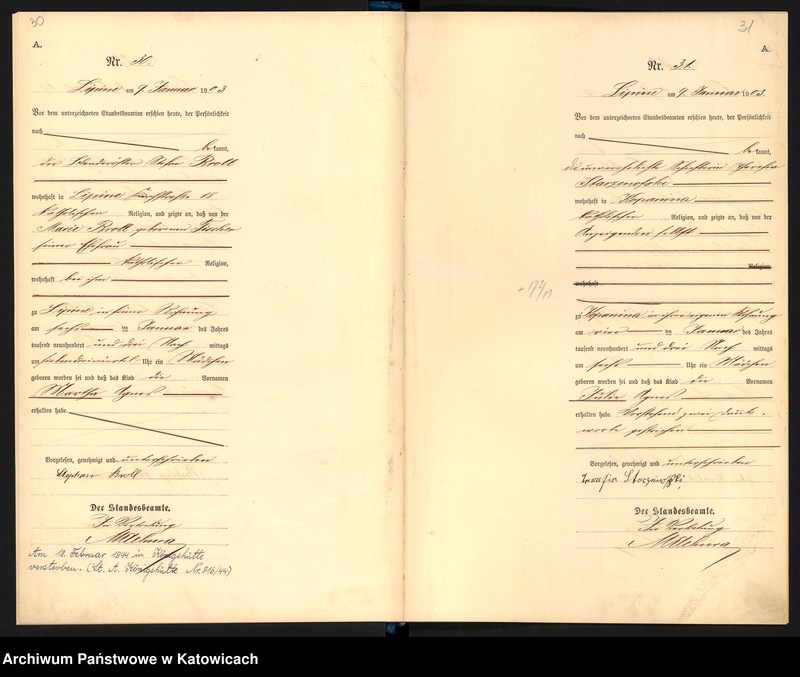 30
A.
Nr. 30.
Lipine am 9. Januar 1903
Vor dem unterzeichneten Standesbeamten erschien heute, der Persönlichkeit
nach
bekannt,
der Stefan Kroll
wohnhaft in Lipine
katholischer Religion, und zeigte an, daß von der
Marie Kroll geborenen Fischer
seiner Ehefrau
katholischer Religion,
wohnhaft bei ihm
zu Lipine in seiner Wohnung
am sechs ten Januar des Jahres
tausend neunhundert und drei Nach mittags
um Uhr ein Mädchen
geboren worden sei und daß das Kind die Vornamen
Martha Agnes
erhalten habe.
Vorgelesen, genehmigt und unterschrieben
Stephan Kroll
Der Standesbeamte.
In Vertretung
Am 18. Februar 1944 in Königshütte
verstorben. (St. A. Königshütte Nr. 316/44)
31
A.
Nr. 31.
Lipine am 9. Januar 1903.
Vor dem unterzeichneten Standesbeamten erschien heute, der Persönlichkeit
nach
bekannt,
die unverehelichte Theresia
wohnhaft in Kopanina
katholischer Religion, und zeigte an, daß von der
Anzeigenden selbst
Religion,
wohnhaft
zu Kopanina in ihrer eigenen Wohnung
am vier ten Januar des Jahres
tausend neunhundert und drei Nach mittags
um sechs Uhr ein Mädchen
geboren worden sei und daß das Kind die Vornamen
Julie Agnes
erhalten habe. Vorstehend zwei Druck-
worte gestrichen
Vorgelesen, genehmigt und unterschrieben
Der Standesbeamte.
In Vertretung
Archiwum Państwowe w Katowicach